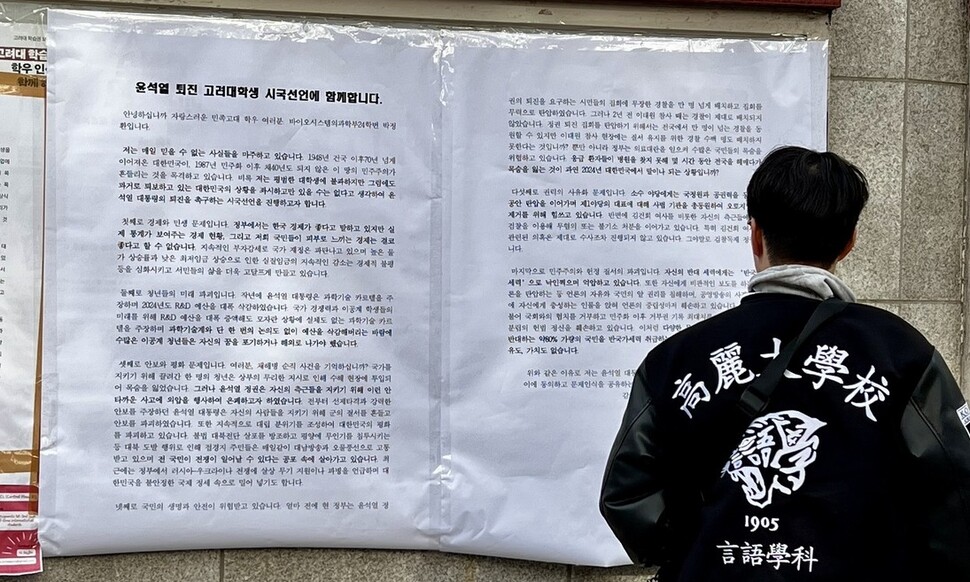 고려대 학
학우 인
함께
윤석열 퇴진 고려대학생 시국선언에 함께합니다.
안녕하십니까 자랑스러운 민족고대 학우 여러분 바이오시스템의과학부24학번 박정
환입니다.
저는 매일 믿을 수 없는 사실들을 마주하고 있습니다. 1948년 건국 이후70년 넘게
이어져온 대한민국이, 1987년 민주화 이후 채40년도 되지 않은 이 땅의 민주주의가
흔들리는 것을 목격하고 있습니다. 비록 저는 평범한 대학생에 불과하지만 그럼에도
과거로 퇴보하고 있는 대한민국의 상황을 좌시하고만 있을 수는 없다고 생각하여 윤
석열 대통령의 퇴진을 촉구하는 시국선언을 진행하고자 합니다.
첫째로 경제와 민생 문제입니다. 정부에서는 한국 경제가 좋다고 말하고 있지만 실
제 통계가 보여주는 경제 현황, 그리고 저희 국민들이 피부로 느끼는 경제는 결코
좋다고 할 수 없습니다. 지속적인 부자감세로 국가 재정은 파탄나고 있으며 높은 물
가 상승률과 낮은 최저임금 상승으로 인한 실질임금의 지속적인 감소는 경제적 불평
등을 심화시키고 서민들의 삶을 더욱 고달프게 만들고 있습니다.
둘째로 청년들의 미래 파괴입니다. 작년에 윤석열 대통령은 과학기술 카르텔을 주
장하며 2024년도 R&D 예산을 대폭 삭감하였습니다. 국가 경쟁력과 이공계 학생들의
미래를 위해 R&D 예산을 대폭 증액해도 모자란 상황에 실체도 없는 과학기술 카르
텔을 주장하며 과학기술계와 단 한 번의 논의도 없이 예산을 삭감해버리는 바람에
수많은 이공계 청년들은 자신의 꿈을 포기하거나 해외로 나가야 했습니다.
셋째로 안보와 평화 문제입니다. 여러분, 채해병 순직 사건을 기억하십니까? 국가를
지키기 위해 끌려간 한 명의 청년은 상부의 무리한 지시로 인해 수해 현장에 투입되
어 목숨을 잃었습니다. 그러나 윤석열 정권은 자신의 측근들을 지키기 위해 이런 안
타까운 사고에 외압을 행사하여 은폐하고자 하였습니다. 전부터 선제타격과 강력한
안보를 주장하던 윤석열 대통령은 자신의 사람들을 지키기 위해 군의 질서를 흔들고
안보를 파괴하였습니다. 또한 지속적으로 대립 분위기를 조성하여 대한민국의 평화
를 파괴하고 있습니다. 불법 대북전단 살포를 방조하고 평양에 무인기를 침투시키는
등 대북 도발 행위로 인해 접경지 주민들은 매일같이 대남방송과 오물풍선으로 고통
받고 있으며 전 국민이 전쟁이 일어날 수 있다는 공포 속에 살아가고 있습니다. 최
근에는 정부에서 러시아-우크라이나 전쟁에 살상 무기 지원이나 파병을 언급하며 대
한민국을 불안정한 국제 정세 속으로 밀어 넣기도 합니다.
넷째로 국민의 생명과 안전이 위협받고 있습니다. 얼마 전에 현 정부는 윤석열 정
권의 퇴진을 요구하는 시민들의 집회에 무장한 경찰을 만 명 넘게 배치하고 집회를
무력으로 탄압하였습니다. 그러나 2년 전 이태원 참사 때는 경찰이 제대로 배치되지
않았었습니다. 정권 퇴진 집회를 탄압하기 위해서는 전국에서 만 명이 넘는 경찰을 동
원할 수 있지만 이태원 참사 현장에는 질서 유지를 위한 경찰 수백 명도 배치하지
못한다는 것입니까? 뿐만 아니라 정부는 의료대란을 일으켜 수많은 국민들의 목숨을
위협하고 있습니다. 응급 환자들이 병원을 찾지 못해 몇 시간 동안 전국을 헤매다가
목숨을 잃는 것이 과연 2024년 대한민국에서 말이 되는 상황입니까?
다섯째로 권력의 사유화 문제입니다. 소수 야당에게는 국정원과 공권력을
공안 탄압을 이어가며 제1야당의 대표에 대해 사법 기관을 총동원하여 오로지
제거를 위해 힘쓰고 있습니다. 반면에 김건희 여사를 비롯한 자신의 측근들에
검찰을 이용해 무혐의 또는 불기소 처분을 이어가고 있습니다. 특히 김건희 여
관련된 의혹은 제대로 수사조차 진행되지 않고 있습니다.
마지막으로 민주주의와 헌정 질서의 파괴입니다. 자신의 반대 세력에게는
세력" 으로 낙인찍으며 억압하고 있습니다. 또한 자신에게 비판적인 보도를 하
론을 탄압하는 등 언론의 자유와 국민의 알 권리를 침해하며, 공영방송의 사
에 자신에게 충성하는 인물을 앉혀 언론의 중립성마저 훼손하고 있습니다.
불어 국회와의 협치를 거부하고 민주화 이후 거부권 기록
분립의 헌법 정신을 훼손하고 있습니다. 이처럼 다양한
반대하는 약80% 가량의 국민을 반국가세력 취급하는
유도, 가치도 없습니다.
위와 같은 이유로 저는 윤석열 대통령
이에 동의하고 문제인식을 공유하는
高麗大學校
1905
言語學科